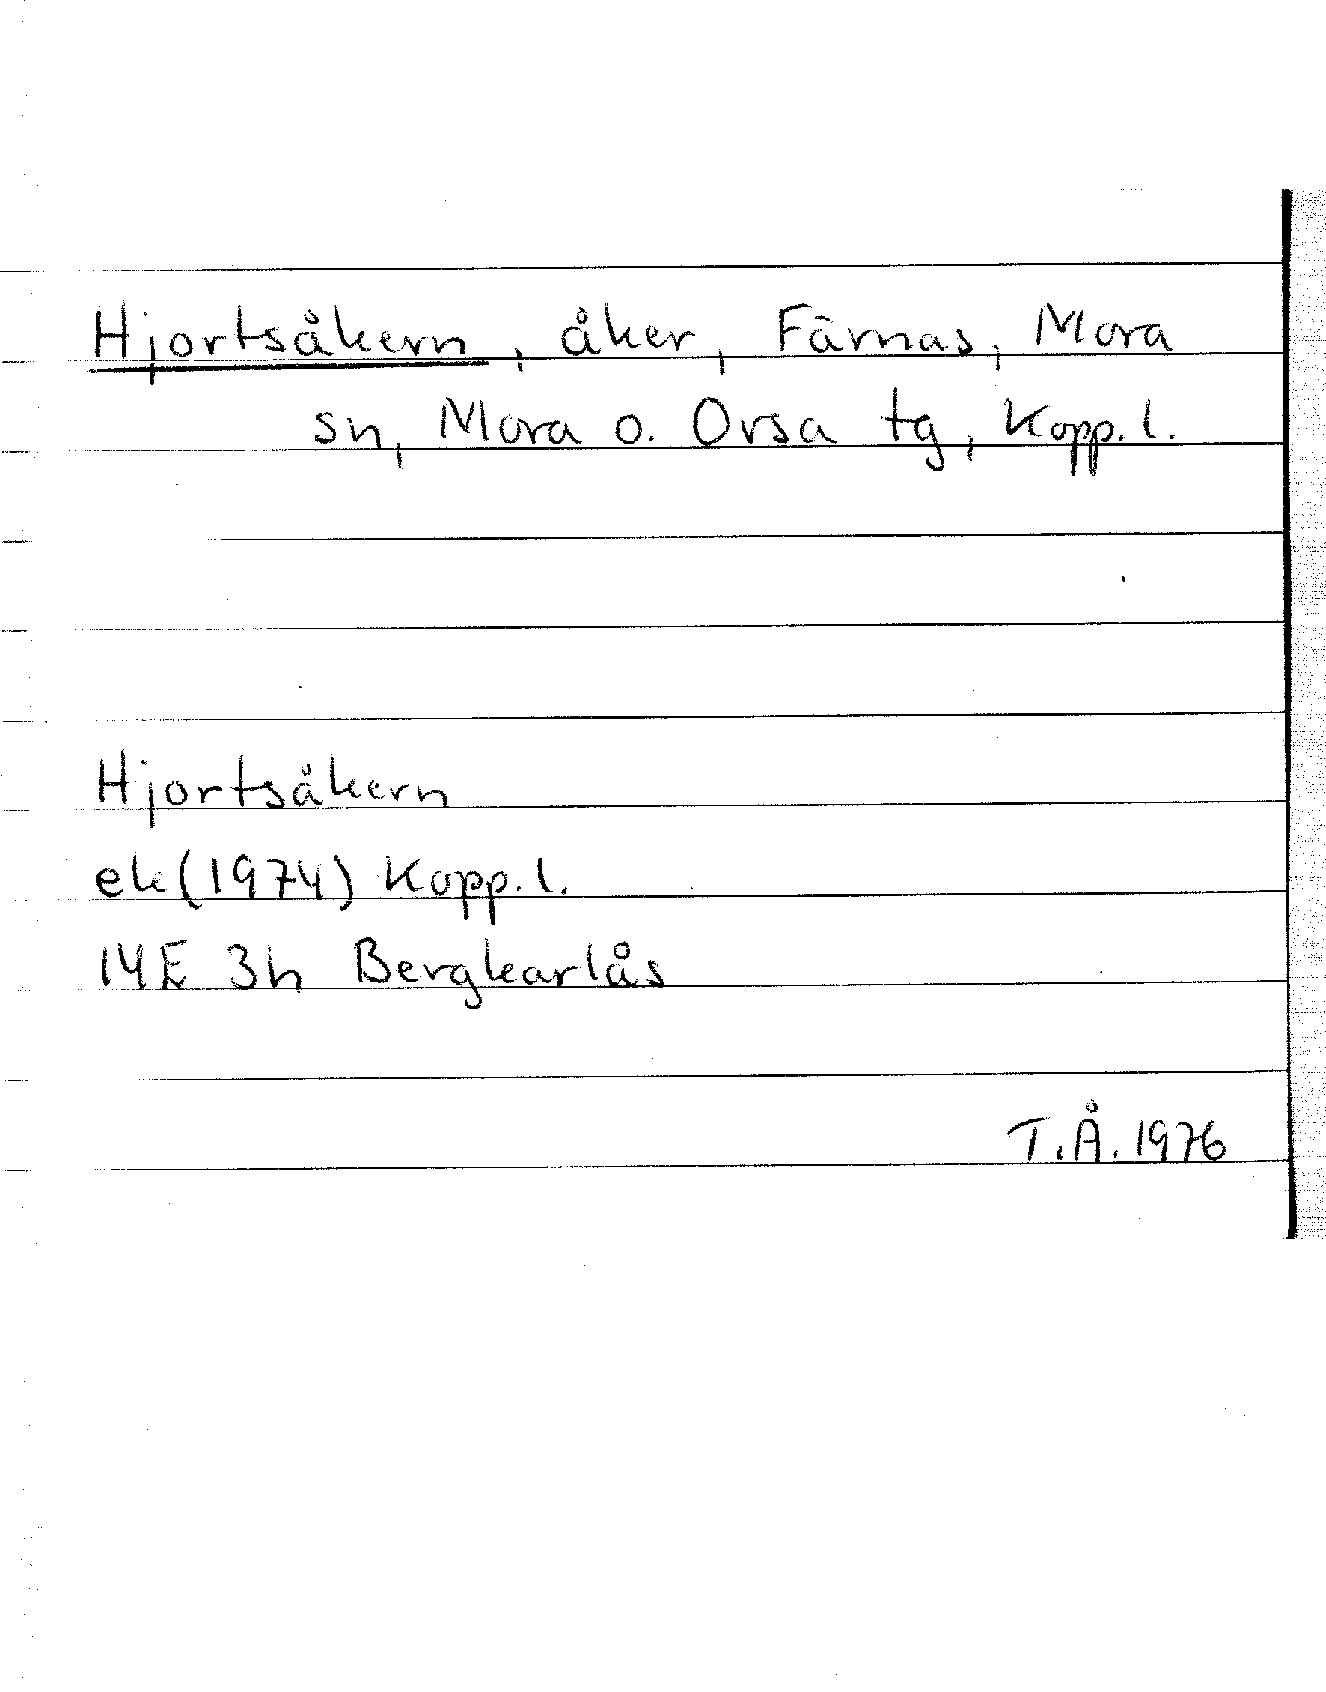 Hjortsåkern, åker, Färnas, Mora
sn, Mora o. Orsa tg, Kopp. l.
Hjortsåkern
ek (1974) Kopp. l.
14E 3h Bergkarlås
T.Å. 1976